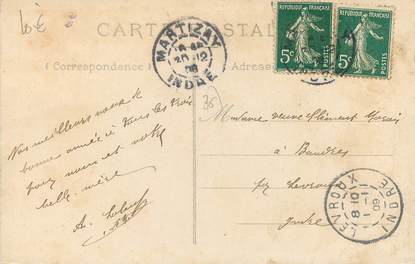 10€
CARTE POSTALE
Correspondance
Adresse
RÉPUBLIQUE FRANÇAISE
5c
POSTES
RÉPUBLIQUE FRANÇAISE
5c
POSTES
MARTIZAY
INDRE
36
Nos meilleurs vœux de
bonne année à tous les trois
pour vous et votre
belle mère
A.
Madame veuve Clément
à Baudres
par Levroux
Indre
LEVROUX
8 10
1 - 1
09
INDRE